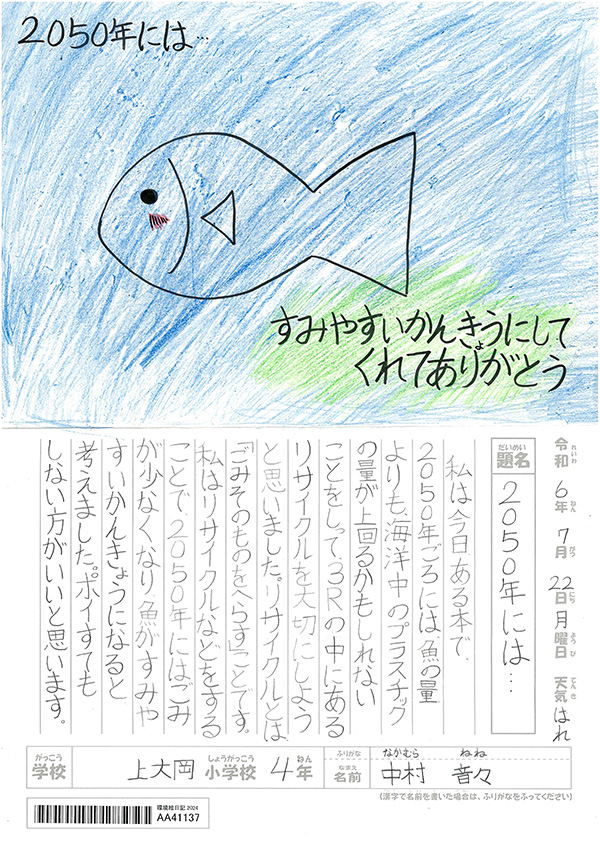 2050年には…
すみやすいかんきょうにして
くれてありがとう
令和6年7月22日月曜日 天気 はれ
れいわ ねん がつ にち ようび てんき
だいめい
題名 2050年には…
私は今日、ある本で、
2050年ごろには、魚の量
よりも、海洋中のプラスチック
の量が上回るかもしれない
ことをしって、3Rの中にある
リサイクルを大切にしよう
と思いました。リサイクルとは
「ごみそのものをへらす」ことです。
私はリサイクルなどをする
ことで、2050年にはごみ
が少なくなり、魚がすみや
すいかんきょうになると
考えました。ポイすても
しない方がいいと思います。
がっこう しょうがっこう ねん
学校 上大岡小学校 4年
ふりがな なかむら ねね
なまえ
名前 中村 音々
(漢字で名前を書いた場合は、ふりがなをふってください)
環境絵日記 2024
AA41137